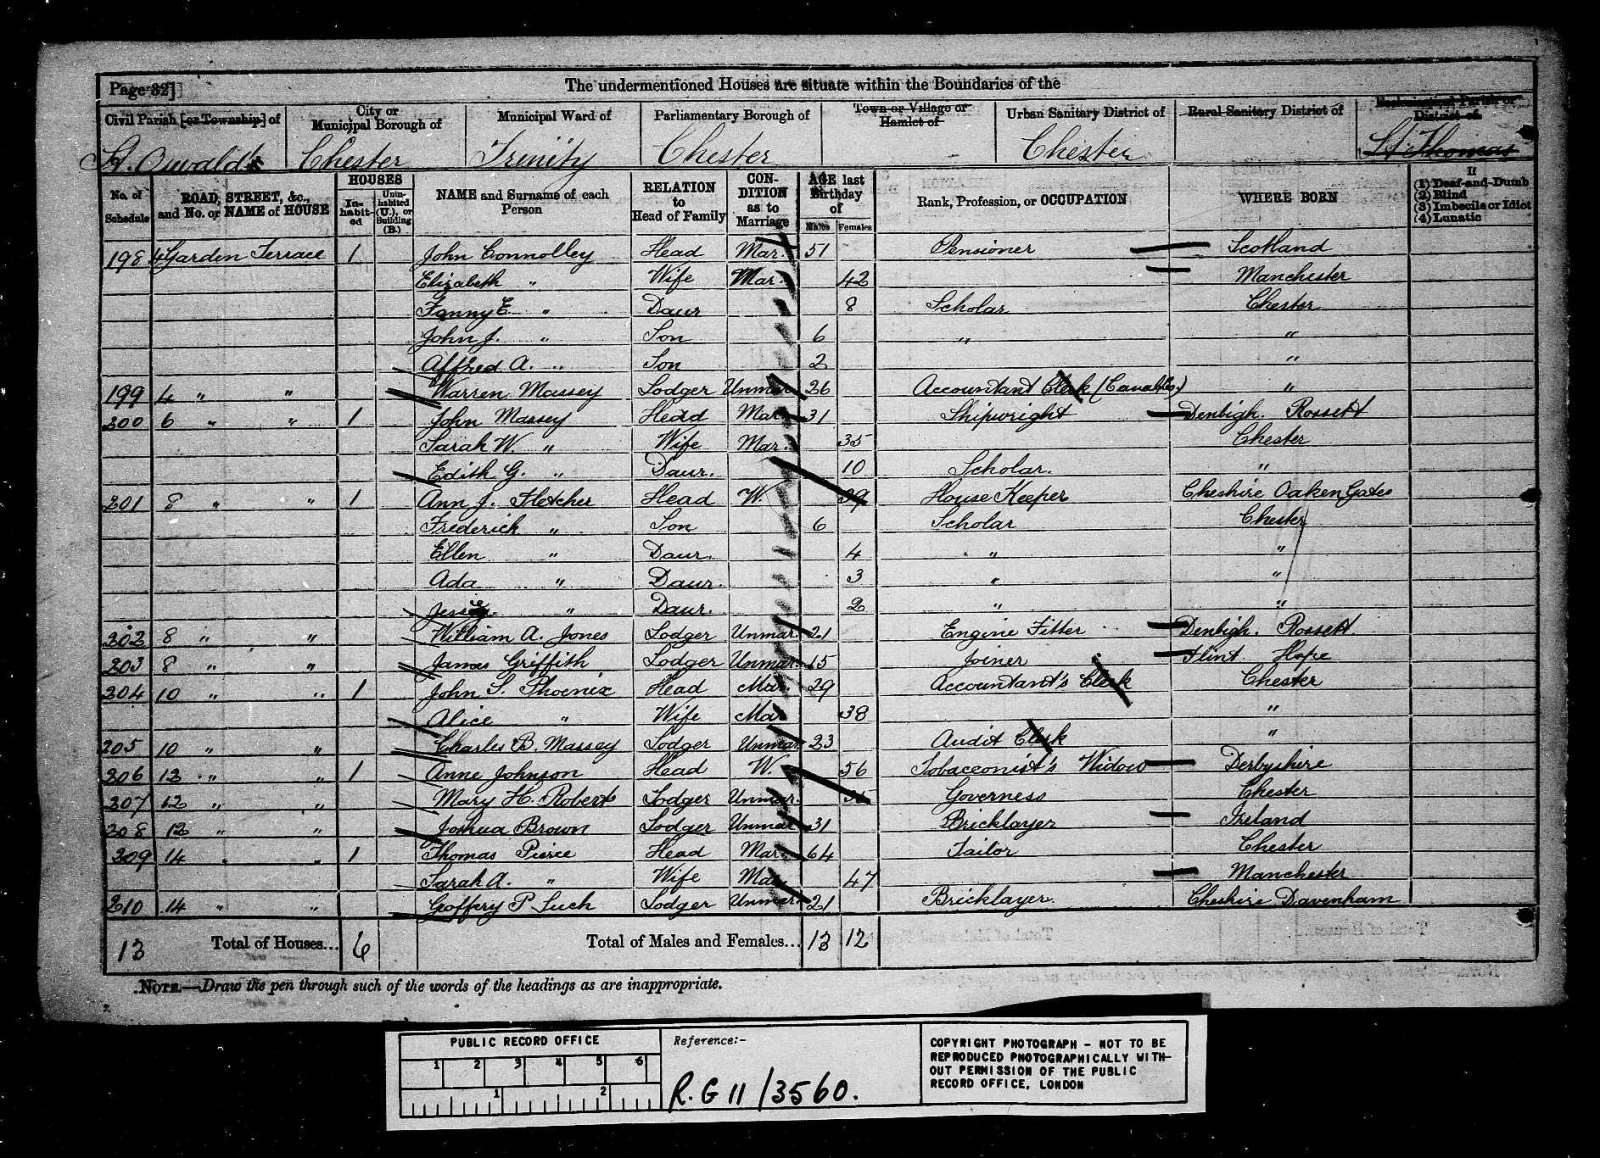 Page 32]
The undermentioned Houses are situate within the Boundaries of the
Civil Parish [or Township] of City or Municipal Borough of Municipal Ward of Parliamentary Borough of Town or Village or Hamlet of Urban Sanitary District of Rural Sanitary District of Ecclesiastical Parish or District of
St. Oswalds Chester Trinity Chester Chester St Thomas
No. of Schedule ROAD, STREET, &c., and No. or NAME of HOUSE HOUSES In-habit-ed Unin-habited (U.), or Building (B.) NAME and Surname of each Person RELATION to Head of Family CON-DITION as to Marriage AGE last Birthday of Males Females Rank, Profession, or OCCUPATION WHERE BORN If (1) Deaf-and-Dumb (2) Blind (3) Imbecile or Idiot (4) Lunatic
198 4 Garden Terrace 1 John Connolley Head Mar. 51 Pensioner Scotland
Elizabeth " Wife Mar. 42 Manchester
Fanny E. " Daur 8 Scholar Chester
John J. " Son 6 " "
Alfred A. " Son 2 "
199 4 " " Warren Massey Lodger Unmar 26 Accountant Clerk "
200 6 " " 1 John Massey Head Mar 31 Shipwright Denbigh. Rossett
Sarah W. " Wife Mar. 35 Chester
Edith G. " Daur. 10 Scholar. "
201 8 " " 1 Ann J. Fletcher Head W. 39 House Keeper Cheshire Oaken Gates
Frederick " Son 6 Scholar Chester
Ellen " Daur. 4 " "
Ada " Daur. 3 " "
Jessie " Daur. 2 " "
202 8 " " William A. Jones Lodger Unmar. 21 Engine Fitter Denbigh. Rossett
203 8 " " James Griffith Lodger Unmar. 15 Joiner Flint. Hope
204 10 " " 1 John S. Phoenix Head Mar. 29 Accountant's Clerk Chester
Alice " Wife Mar 38 "
205 10 " " Charles B. Massey Lodger Unmar. 23 Audit Clerk "
206 12 " " 1 Anne Johnson Head W. 56 Tobacconist's Widow Derbyshire
207 12 " " Mary H. Roberts Lodger Unmar. 35 Governess Chester
208 12 " " Joshua Brown Lodger Unmar 31 Bricklayer Ireland
209 14 " " 1 Thomas Pierce Head Mar. 64 Tailor Chester
Sarah A. " Wife Mar 47 Manchester
210 14 " " Goffery P. Such Lodger Unmar. 21 Bricklayer. Cheshire Davenham
13 Total of Houses... 6 Total of Males and Females... 13 12
NOTE.—Draw the pen through such of the words of the headings as are inappropriate.
PUBLIC RECORD OFFICE
1 2 3 4 5 6
1 2
Reference:-
R.G 11/3560.
COPYRIGHT PHOTOGRAPH - NOT TO BE
REPRODUCED PHOTOGRAPHICALLY WITH-
OUT PERMISSION OF THE PUBLIC
RECORD OFFICE, LONDON